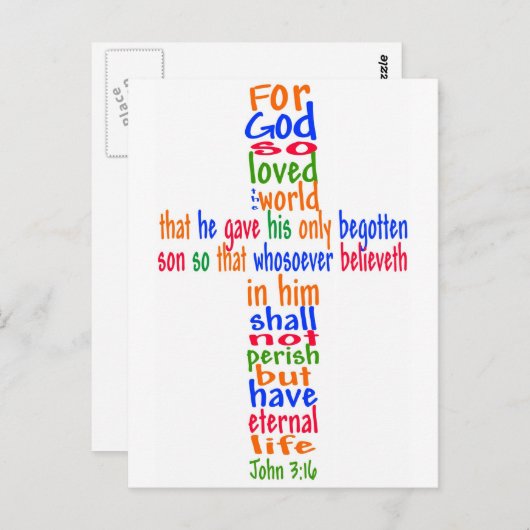 For
God
so
loved
the world
that he gave his only begotten
son so that whosoever believeth
in him
shall
not
perish
but
have
eternal
life
John 3:16
Place
zzle